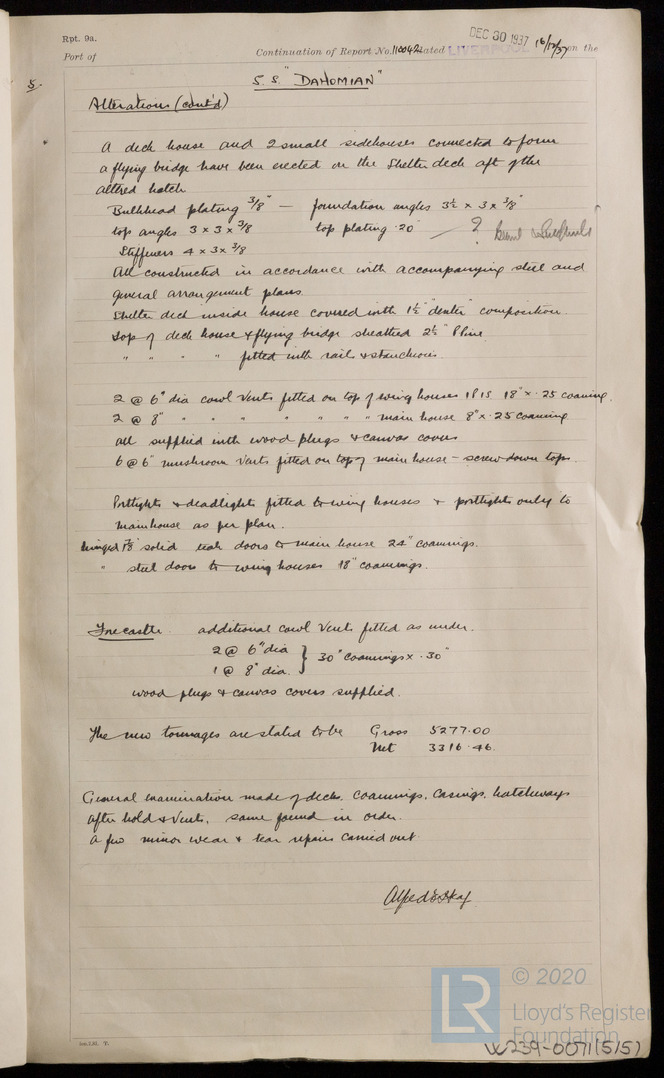 Rpt. 9a.
DEC 30 1937
Port of
Continuation of Report No. 110042 dated LIVERPOOL 16/12/37 on the
5.
S.S. "DAHOMIAN"
Alterations (cont'd)
A deck house and 2 small sidehouses connected to form
a flying bridge have been erected on the Shelter deck aft of the
altred hatch
Bulkhead plating 3/8" — foundation angles 3½ x 3 x 3/8"
top angles 3 x 3 x 3/8 top plating .20 — ?
Stiffeners 4 x 3 x 3/8
All constructed in accordance with accompanying steel and
general arrangement plans.
Shelter deck inside house covered with 1½" "dexter" composition.
top of deck house & flying bridge sheathed 2½" Pine
" " " " fitted with rails & stanchions.
2 @ 6" dia cowl vents fitted on top of wing houses P & S 18" x .25 coaming.
2 @ 8" " " " " " " " main house 8" x .25 coaming
all supplied with wood plugs & canvas covers
6 @ 6" mushroom vents fitted on top of main house - screw down tops.
Portlights & deadlights fitted to wing houses & portlights only to
main house as per plan.
hinged 1⅞" solid teak doors to main house 24" coamings.
" steel doors to wing houses 18" coamings.
Forecastle. additional cowl vents fitted as under.
2 @ 6" dia } 30" coamings x .30"
1 @ 8" dia.
wood plugs & canvas covers supplied.
The new tonnages are stated to be Gross 5277.00
Net 3316.46.
General examination made of decks, coamings, casings, hatchways
after hold & vents, same found in order.
A few minor wear & tear repairs carried out
© 2020
LR
Lloyd's Register
Foundation
W239-0071(5/5)